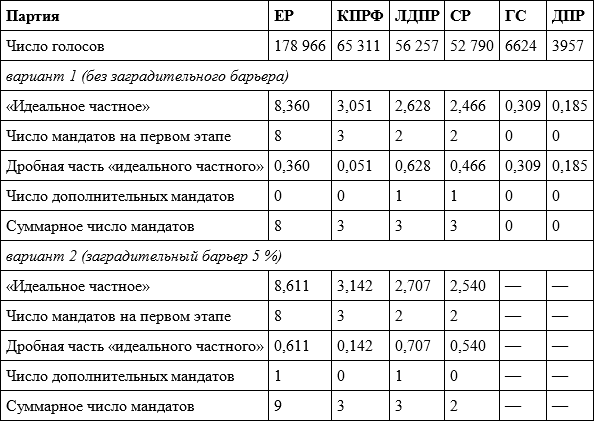 Партия ЕР КПРФ ЛДПР СР ГС ДПР
Число голосов 178 966 65 311 56 257 52 790 6624 3957
вариант 1 (без заградительного барьера)
«Идеальное частное» 8,360 3,051 2,628 2,466 0,309 0,185
Число мандатов на первом этапе 8 3 2 2 0 0
Дробная часть «идеального частного» 0,360 0,051 0,628 0,466 0,309 0,185
Число дополнительных мандатов 0 0 1 1 0 0
Суммарное число мандатов 8 3 3 3 0 0
вариант 2 (заградительный барьер 5 %)
«Идеальное частное» 8,611 3,142 2,707 2,540 — —
Число мандатов на первом этапе 8 3 2 2 — —
Дробная часть «идеального частного» 0,611 0,142 0,707 0,540 — —
Число дополнительных мандатов 1 0 1 0 — —
Суммарное число мандатов 9 3 3 2 — —